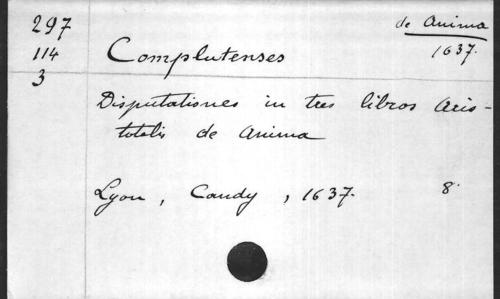 297
114
3
de Anima
1637.
Complutenses
Disputationes in tres libros Aris-
totelis de Anima
Lyon, Candy, 1637. 8°